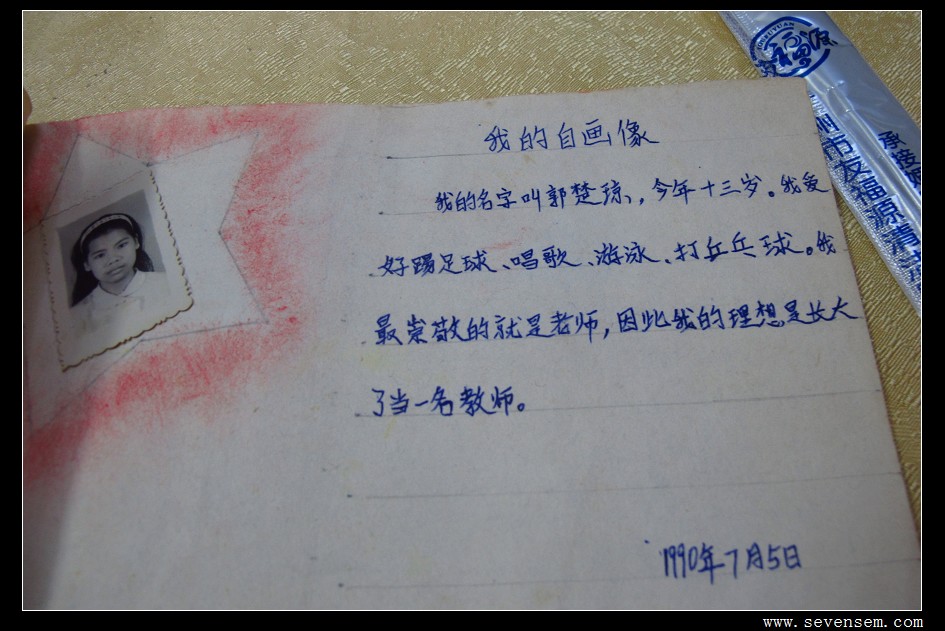 我的自画像
我的名字叫郭楚琼，今年十三岁。我爱
好踢足球、唱歌、游泳、打乒乓球。我
最崇敬的就是老师，因此我的理想是长大
了当一名教师。
1990年7月5日
福源
州市友福源清洁
承接
www.sevensem.com